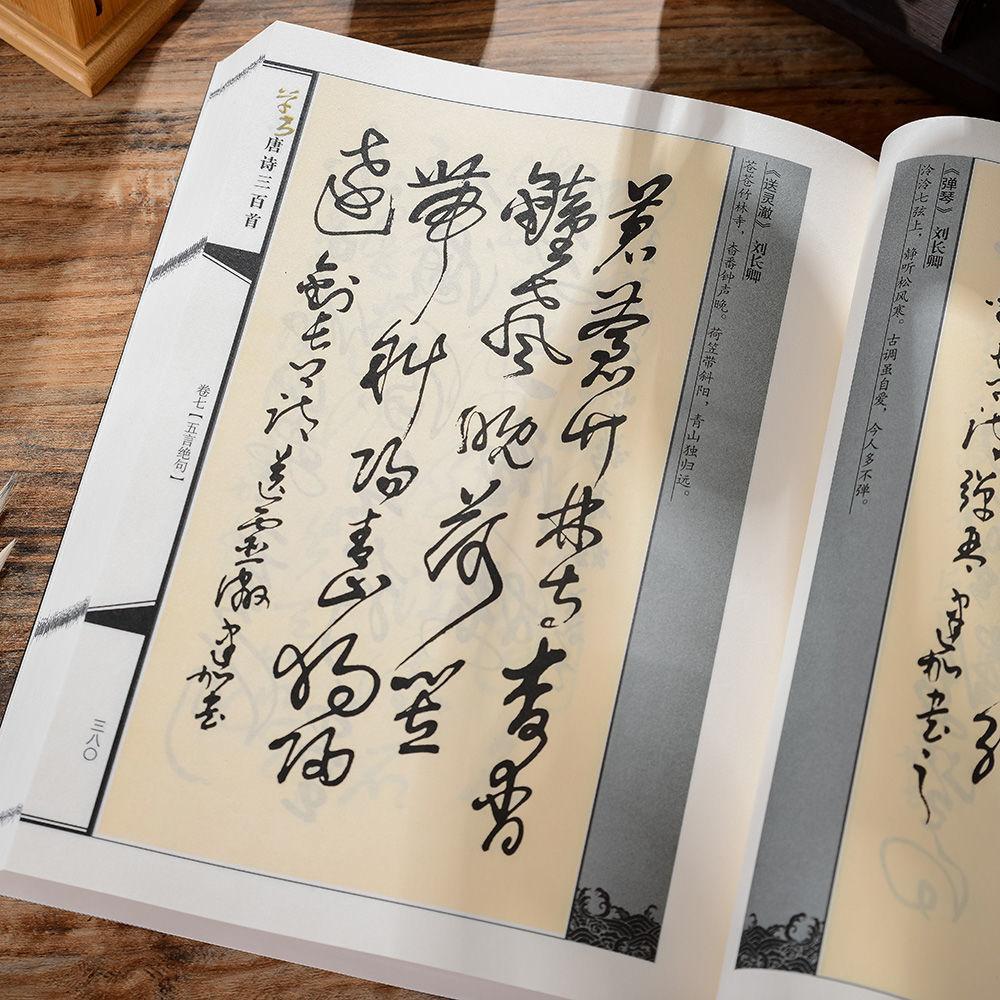 《弹琴》 刘长卿
泠泠七弦上，静听松风寒。古调虽自爱，今人多不弹。
《送灵澈》 刘长卿
苍苍竹林寺，杳杳钟声晚。荷笠带斜阳，青山独归远。
蒼蒼竹林寺杳杳
鐘聲晚荷笠
帶斜陽青山獨歸
遠
劉長卿詩送靈澈建加書
草书
唐诗三百首
卷七【五言绝句】
三八〇